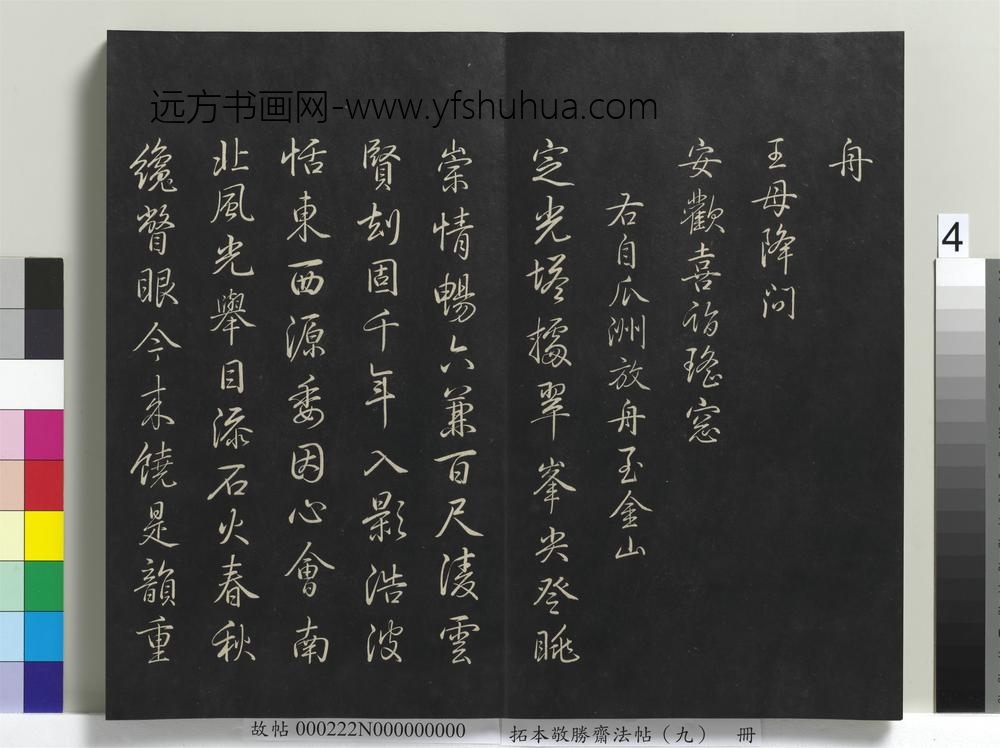 远方书画网-www.yfshuhua.com
舟
王母降问
安歡喜詣瑤窓
右自瓜洲放舟至金山
定光塔據翠峯尖登眺
崇情暢六兼百尺淩雲
賢刼固千年入影浩波
恬東西源委因心會南
北風光舉目添石火春秋
纔瞥眼今来饒是韻重
4
故帖 000222N000000000
拓本敬勝齋法帖（九） 冊